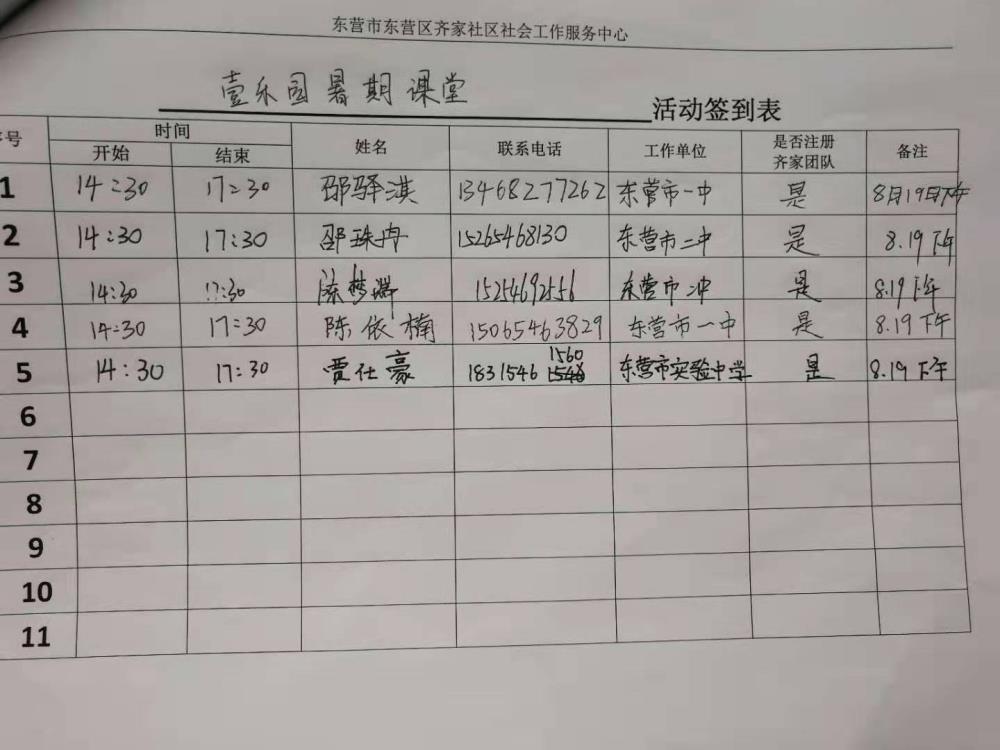 东营市东营区齐家社区社会工作服务中心
壹乐园暑期课堂 活动签到表
序号 时间 姓名 联系电话 工作单位 是否注册齐家团队 备注
开始 结束
1 14:30 17:30 邵驿淇 13468277262 东营市一中 是 8月19日下午
2 14:30 17:30 邵珠冉 15265468130 东营市二中 是 8.19下午
3 14:30 17:30 陈梦瑞 15254692556 东营市二中 是 8.19下午
4 14:30 17:30 陈依楠 15065463829 东营市一中 是 8.19下午
5 14:30 17:30 贾仕豪 1831546 1560 东营市实验中学 是 8.19下午
6
7
8
9
10
11